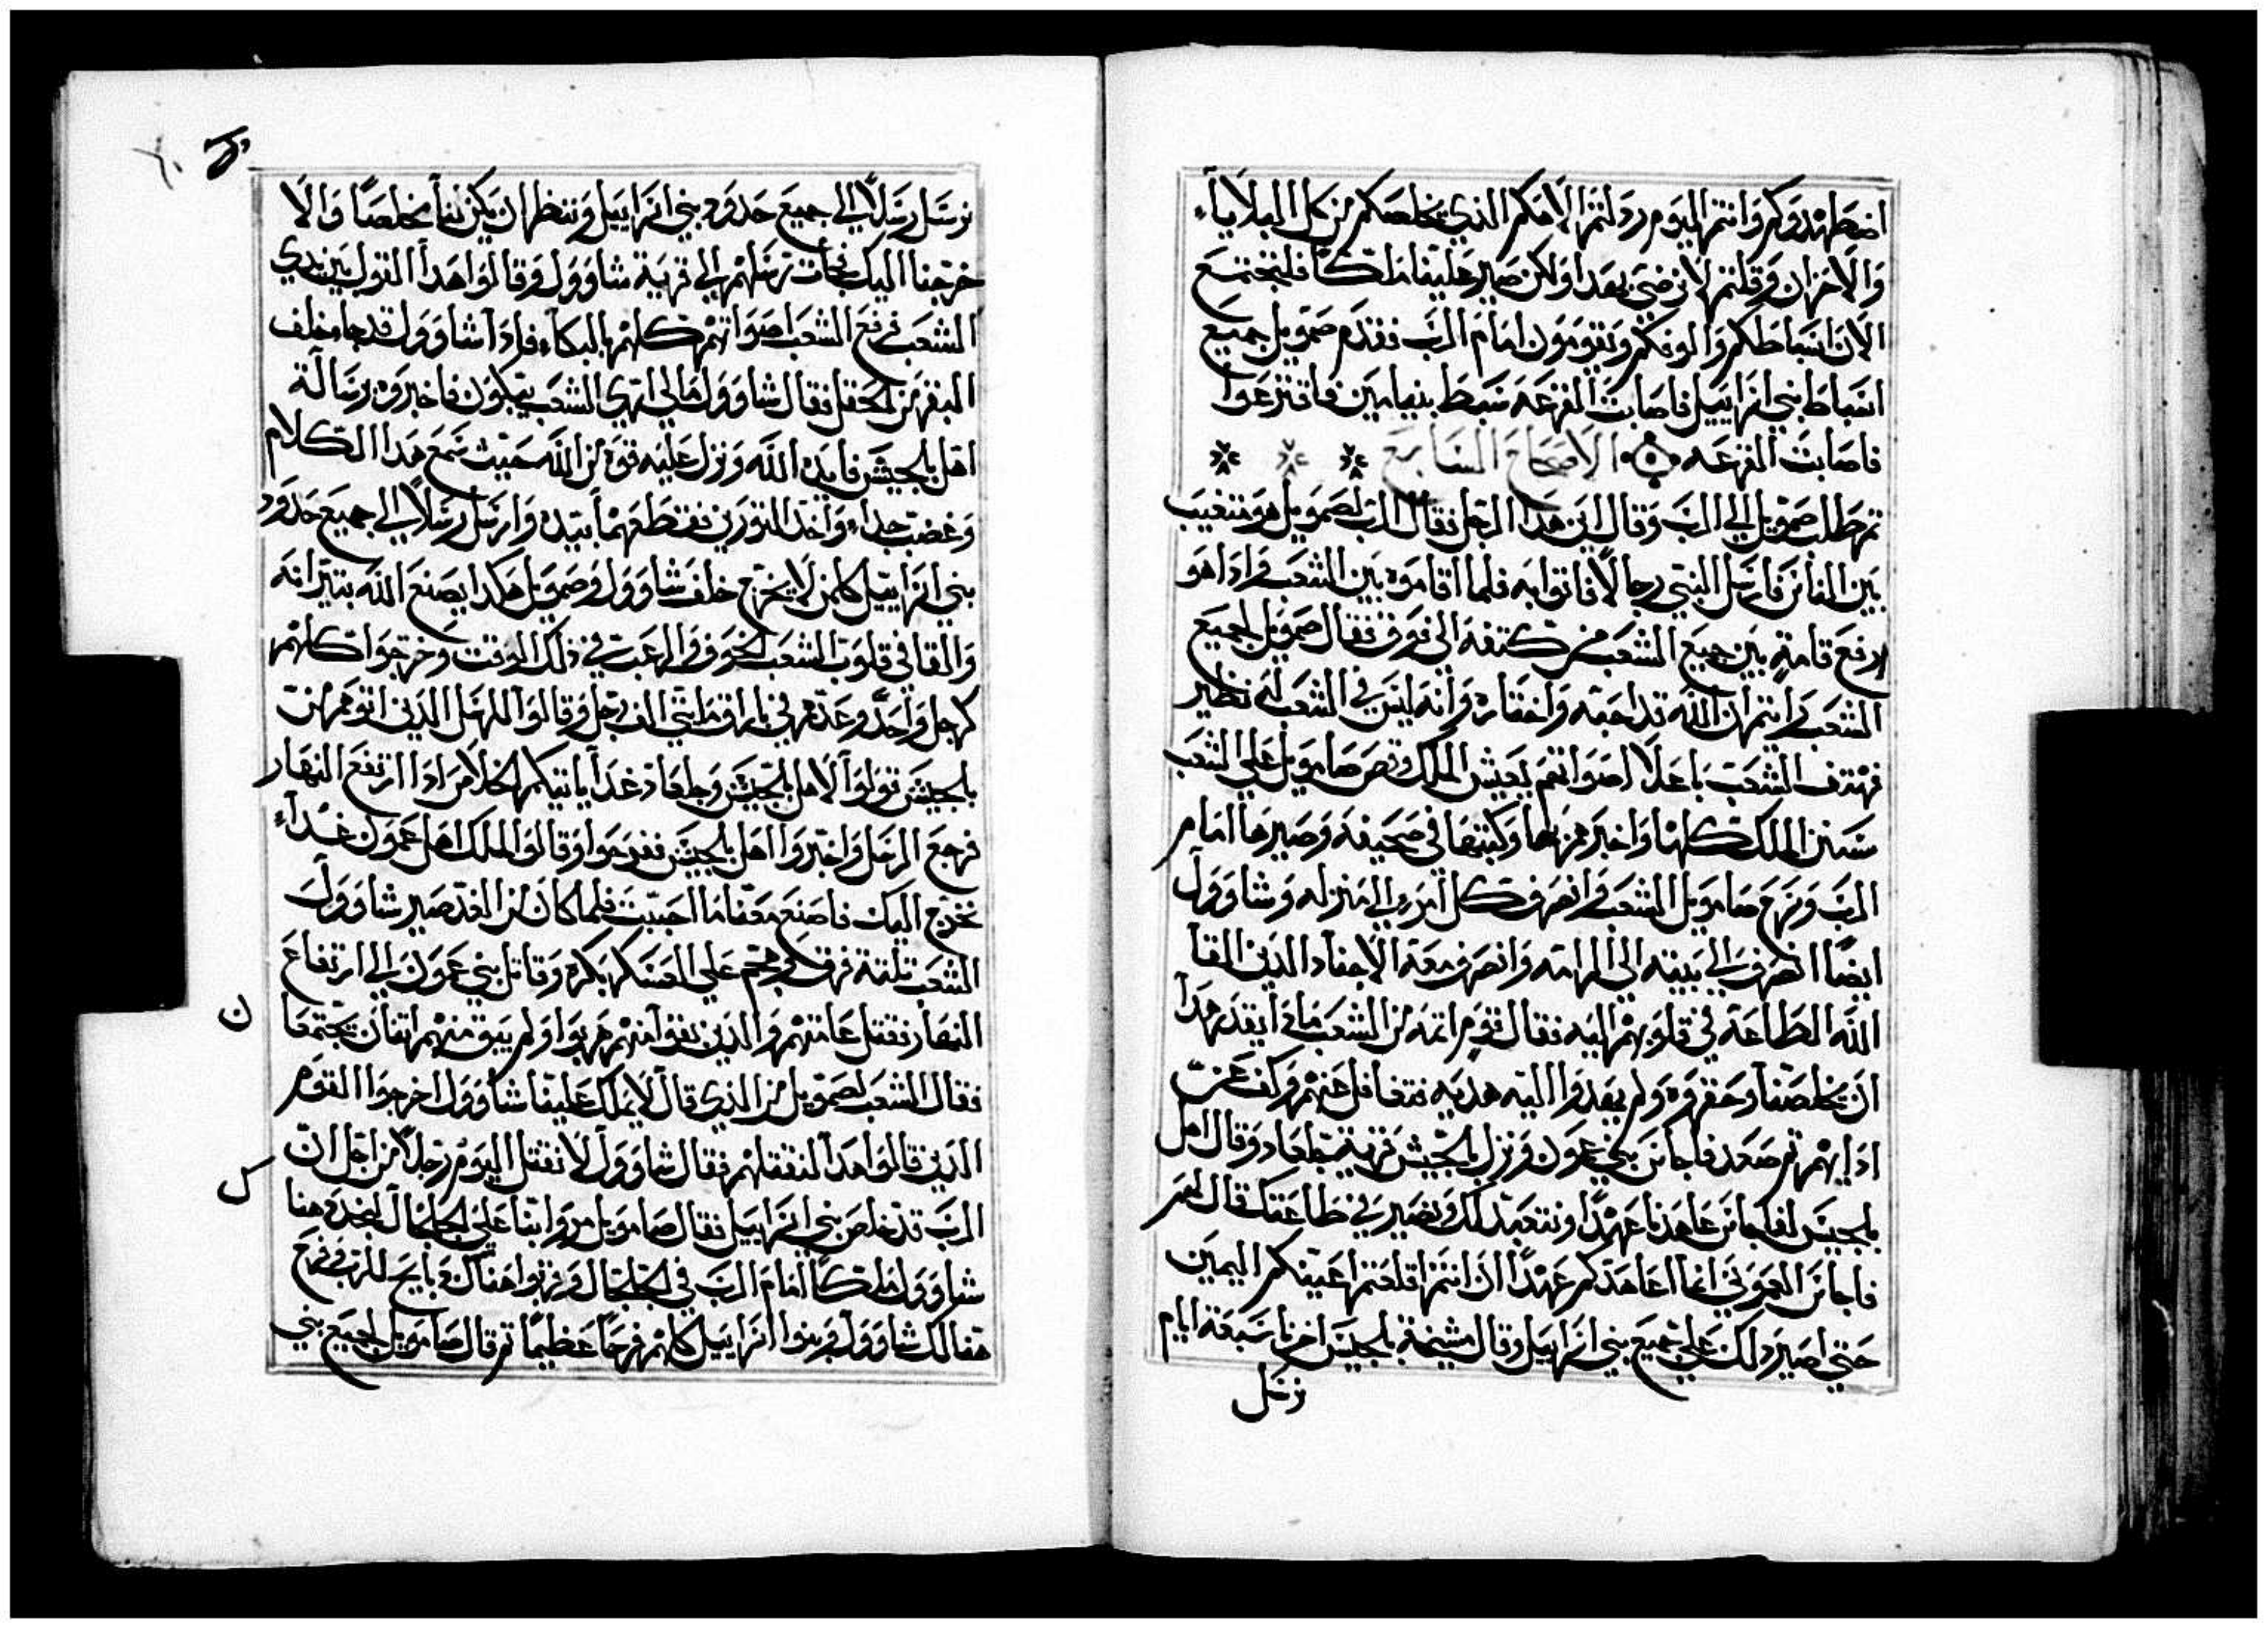 اضطهدوكم وانتم اليوم رذلتم الاهكم الذي يخلصكم من كل البلايا
والاحزان وقلتم لا نرضى بهدا ولكن صير علينا ملكا فلتجتمع
الان اسباطكم والوفكم وتقومون امام الرب فقدم صمويل جميع
اسباط بني اسراييل فاصابت القرعه سبط بنيامين فاقترعوا
فاصابت القرعه الاصحاح السابع
ثم طلب صمويل الي الرب وقال اين هدا الرجل فقال الرب لصمويل هو متغيب
بين فارسل النبي رجالا فاتوا به فلما اقاموه بين الشعب واذا هو
ارفع قامة بين جميع الشعب من كتفه الى فوق فقال صمويل لجميع
الشعب رايتم ان الله قد احبه واختاره وانه ليس في الشعب له نظير
فهتف الشعب باعلا اصواتهم يعيش الملك وقص صامويل على الشعب
سنن الملك كلها واخبرهم بها وكتبها في صحيفه وصيرها امام
الرب وسرح صامويل الشعب وانصرف كل امرء الي منزله وشاوول
ايضا انصرف الي بيته الى الرامه وانصرف معه الاجناد الدين القا
الله الطاعة في قلوبهم اليه فقال قوم اثمه من الشعب ماذا يقدر هدا
ان يخلصنا وحقروه ولم يهدوا اليه هديه فتغافل عنهم وكف عن
اذايهم ثم صعد ناحاس بني عمون ونزل بلجيش قرية جلعاد وقال اهل
بلجيش لناحاس عاهدنا عهدا ونتعبد لك ونصير في طاعتك قال لهم
ناحاس العموني انما اعاهدكم عهدا ان انتم اقلعتم اعينكم اليمين
حتي اصير دلك على جميع بني اسراييل وقال مشيخة بلجيش اخرنا سبعة ايام
نرسل
نرسل رسلا الي جميع حدود بني اسراييل وننظر ان يكن لنا مخلصا والا
خرجنا اليك فجات رسلهم الي قرية شاوول وقالوا هدا القول بين يدي
الشعب فرفع الشعب اصواتهم كلهم بالبكاء فاذا شاوول قد جا خلف
البقر من الحقل فقال شاوول مالي اري الشعب يبكون فاخبروه برسالة
اهل بلجيش فايده الله ونزل عليه قوة من الله حيث سمع هدا الكلام
وغضب جدا واخد الثورين فقطعهما بيده وارسل رسلا الي جميع حدود
بني اسراييل كلمن لا يخرج خلف شاوول وصمويل هكدا يصنع الله بتيرانه
والقا في قلوب الشعب الخوف والرعب في ذلك الوقت وخرجوا كلهم
كرجل واحد وعدهم في بازاق مايتي الف رجل وقالوا للرسل الدين اتوهم من
بلجيش قولوا لاهل بلجيش وجلعاد غدا ياتيكم الخلاص ادا ارتفع النهار
فرجع الرسل واخبروا اهل بلجيش ففرحوا وقالوا لملك اهل عمون غداء
نخرج اليك فاصنع معنا ما احببت فلما كان من الغد صير شاوول
الشعب تلتة فرق وهجم على العسكر بكره وقاتل بني عمون الي ارتفاع
النهار فقتل عامتهم والدين بقوا منهم هربوا ولم يبق منهم اتنان يجتمعا
ن
فقال الشعب لصمويل من الذي قال لا يملك علينا شاوول اخرجوا القوم
الدين قالوا هدا لنقتلهم فقال شاوول لا نقتل اليوم رجلا من اجل ان
الرب قد خلص بني اسراييل فقال صامويل مروا بنا على الجلجال لنجدد هنا
ك
شاوول ملكا امام الرب في الجلجال وقربوا هناك دبايح للرب وفرح
هنالك شاوول وبنوا اسراييل كلهم فرحا عظيما ثم قال صامويل لجميع بني